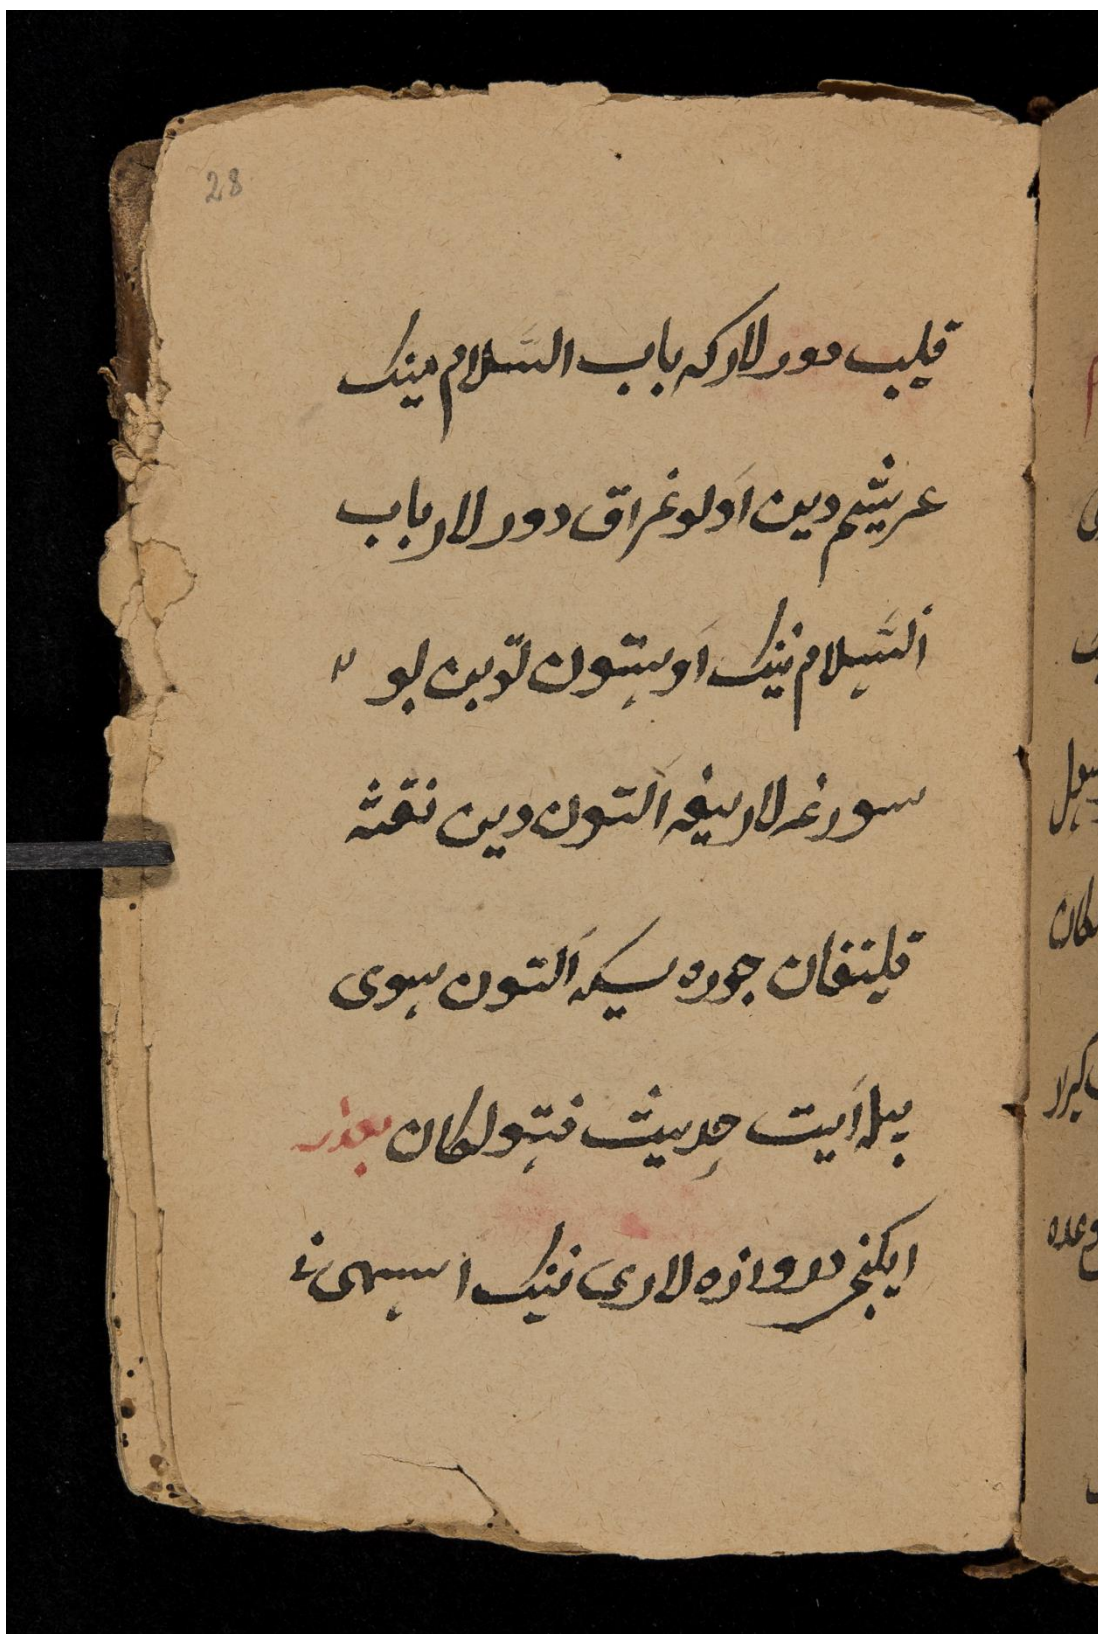 28
قلیب دورلارکه باب السّلام نینک
عریشیم دین اولوغراق دورلار باب
السّلام نینک اوستون توبین لو
سورغه لاریغه التون دین نقشه
قیلنغان جوره سیکه التون سوی
بیله ایت حدیث فتولکان بعدْ
ایکنجی دروازه لاری نینک اسیمی نی